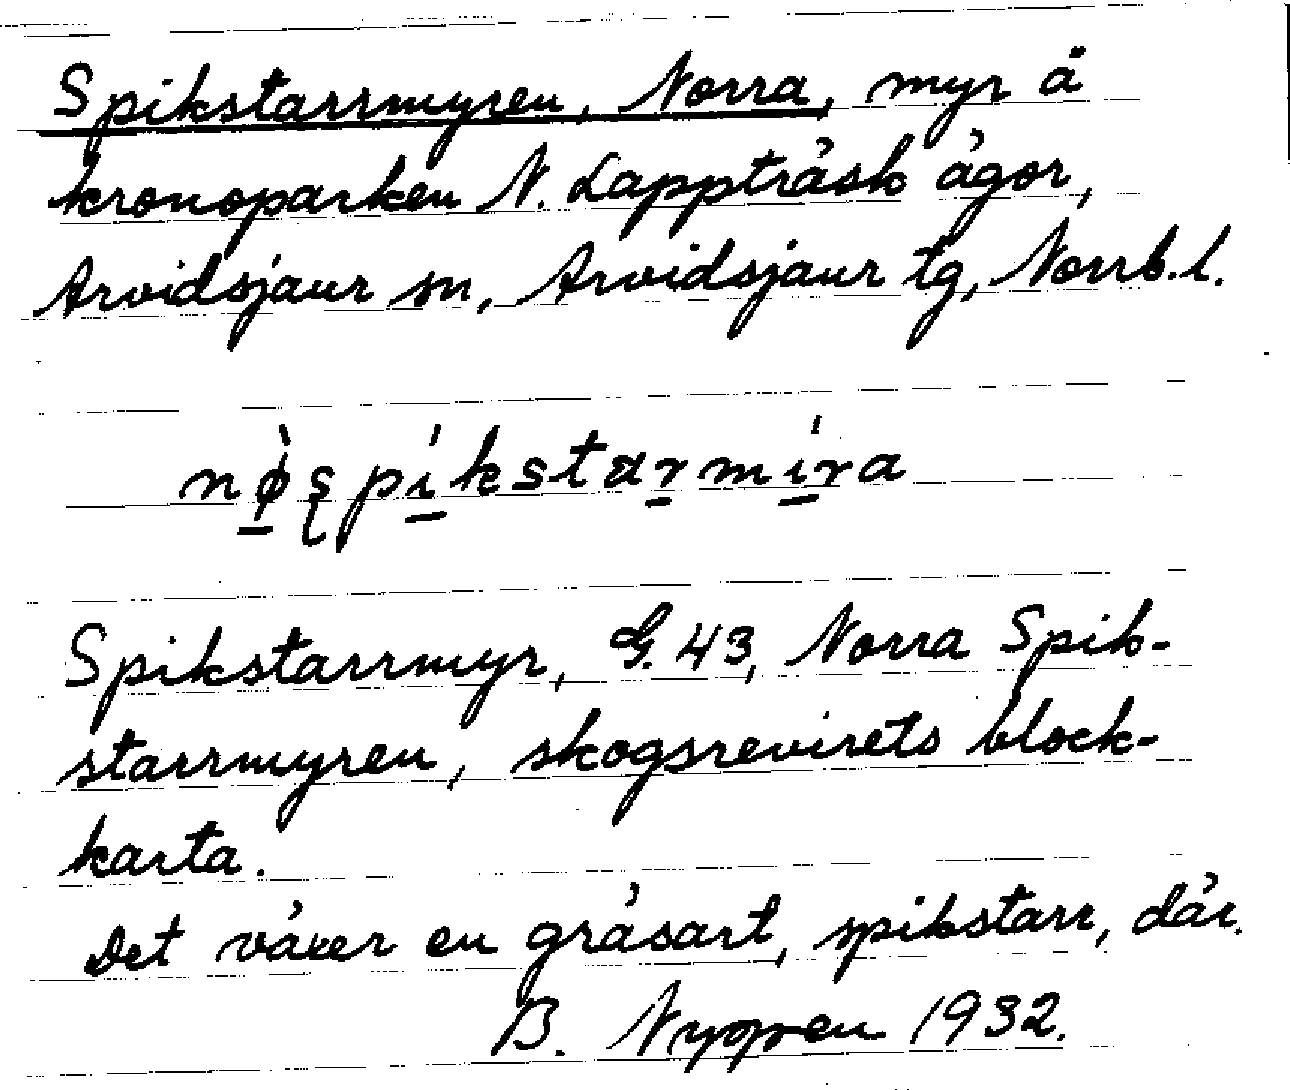 Spikstarrmyren, Norra, myr å
kronoparken N. Lappträsk ägor,
Arvidsjaur sn, Arvidsjaur tg, Norrb. l.
nø̀ʂpíkstarmíra
Spikstarrmyr, G. 43, Norra Spik-
starrmyren, skogsrevirets block-
karta.
Det växer en gräsart, spikstarr, där.
B. Nygren 1932.